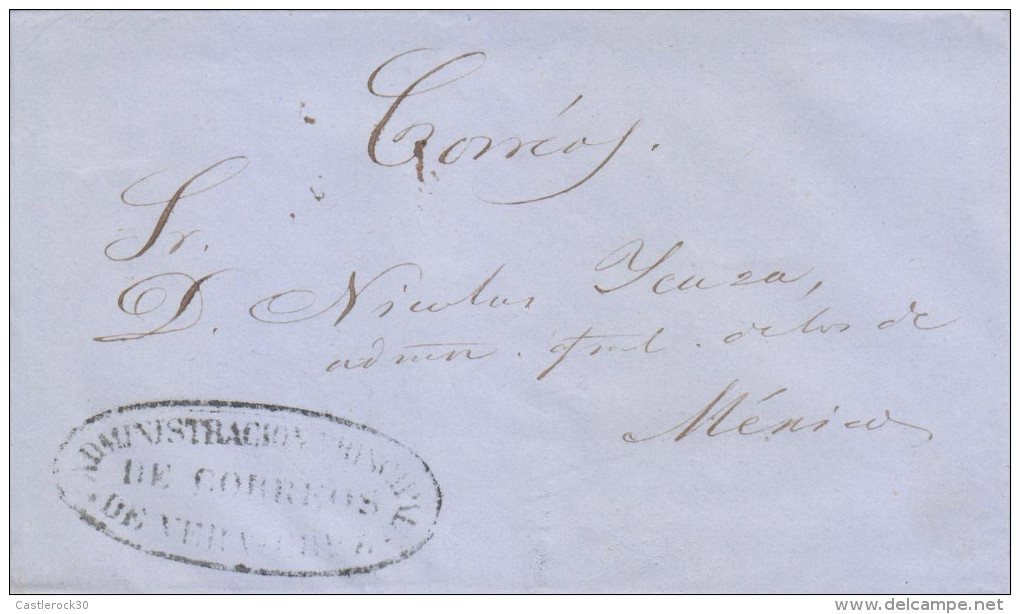 Correos.
Sr.
D. Nicolas Ycaza,
admor. gral. de los de
México
ADMINISTRACION PRINCIPAL
DE CORREOS
DE VERACRUZ
Castlerock30
delcampe.net